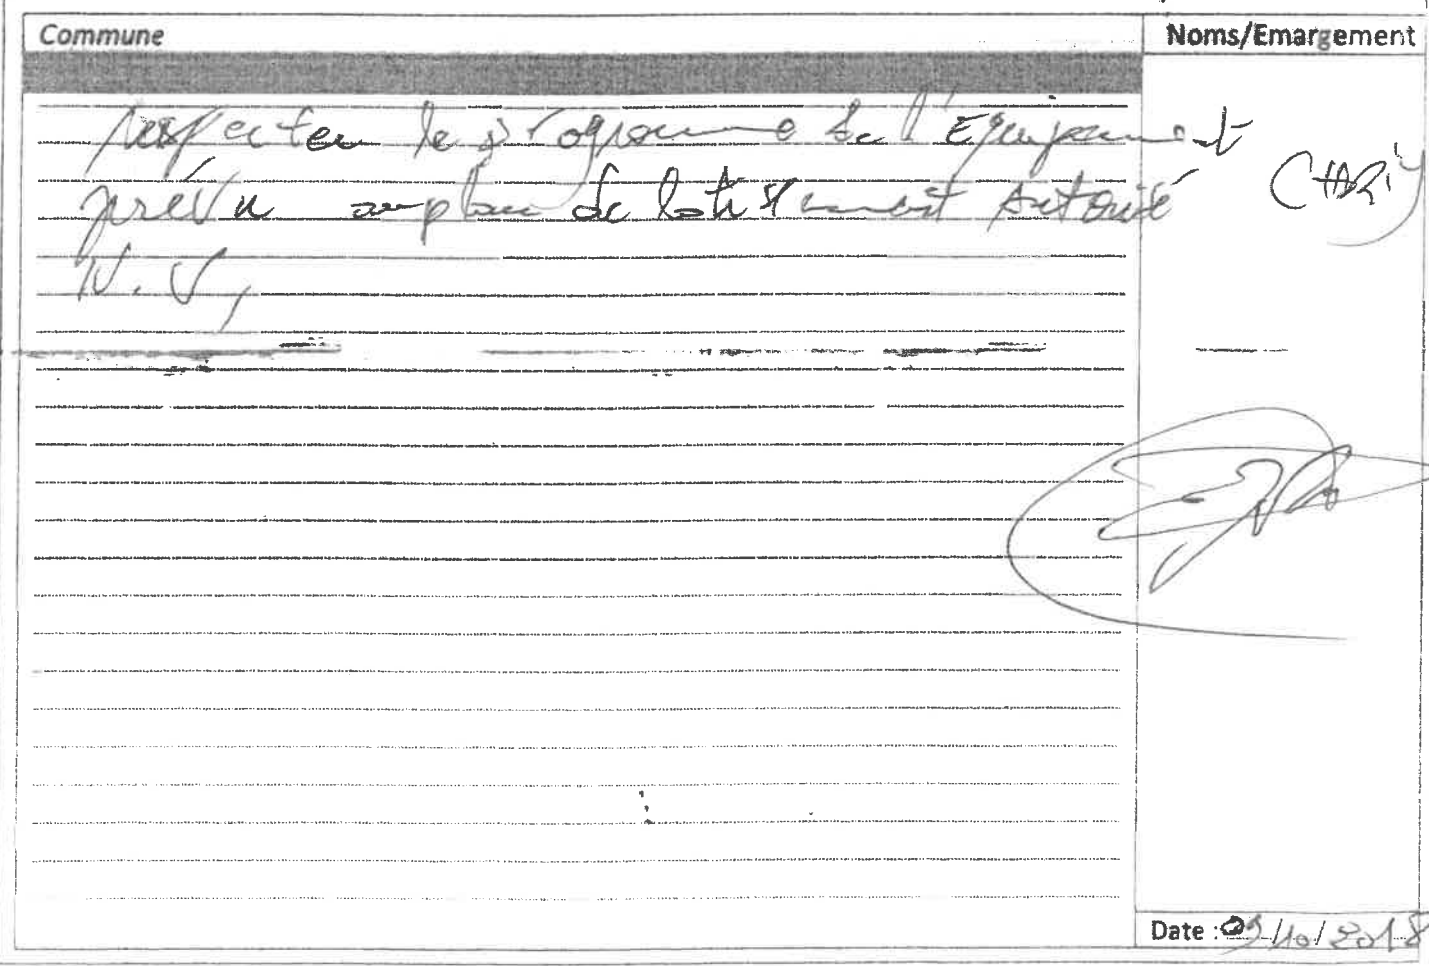 Commune
Noms/Emargement
respecter le programme de l'Equipement
prévu au plan de lotissement Autorisé
N.V,
Date : 09/10/2018